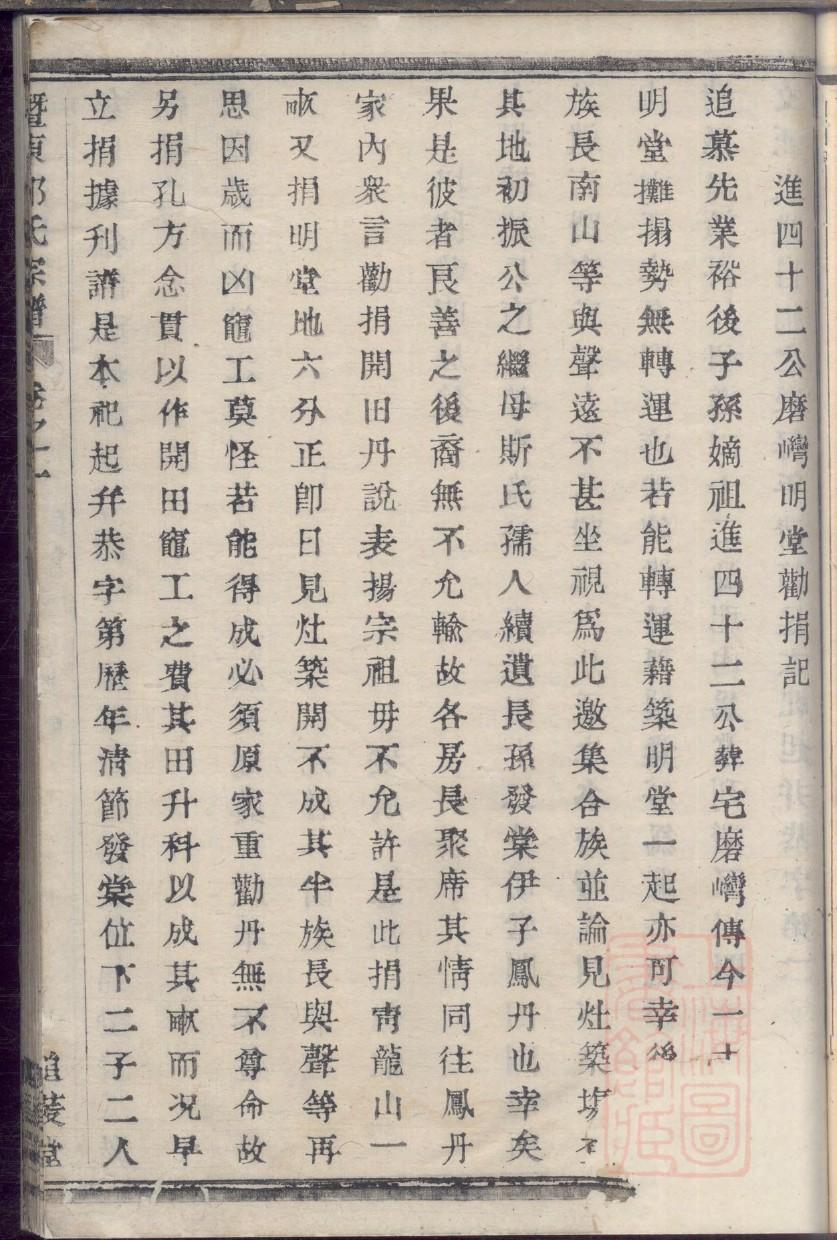 進四十二公磨嶹明堂勸捐記
追慕先業裕後子孫嫡祖進四十二公葬宅磨嶹傳今一十
明堂攤搨勢無轉運也若能轉運藉築明堂一起亦可幸
族長南山等與聲遠不甚坐視爲此邀集合族並論見灶築塲不
其地初振公之繼母斯氏孺人續遺長孫發棠伊子鳳丹也幸矣
果是彼者良善之後裔無不允輸故各房長聚席其情同往鳳丹
家內衆言勸捐開旧丹說表揚宗祖毋不允許是此捐靑龍山一
畝又捐明堂地六分正卽日見灶築開不成其半族長與聲等再
思因歲而凶竉工莫怪若能得成必須原家重勸丹無不尊命故
另捐孔方念貫以作開田竉工之費其田升科以成其畝而况早
立捐據刋譜是本祀起幷恭字第歷年淸節發棠位下二子二人
氏宗譜 卷之一
追 堂